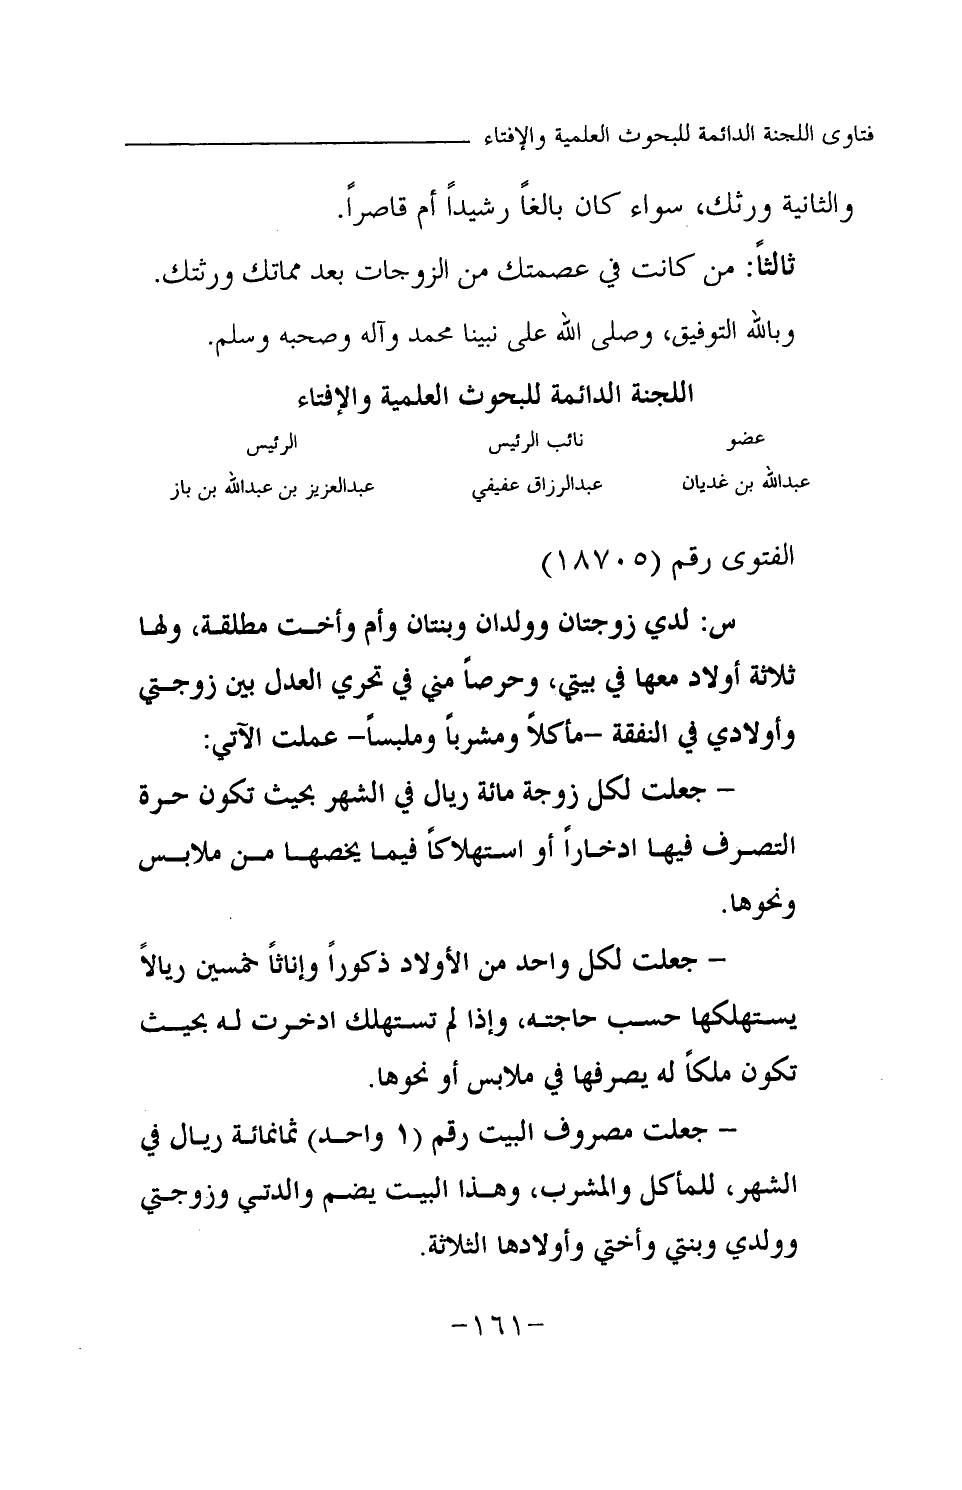 فتاوى اللجنة الدائمة للبحوث العلمية والإفتاء
والثانية ورثك، سواء كان بالغاً رشيداً أم قاصراً.
ثالثاً: من كانت في عصمتك من الزوجات بعد مماتك ورثتك.
وبالله التوفيق، وصلى الله على نبينا محمد وآله وصحبه وسلم.
اللجنة الدائمة للبحوث العلمية والإفتاء
عضو نائب الرئيس الرئيس
عبدالله بن غديان عبدالرزاق عفيفي عبدالعزيز بن عبدالله بن باز
الفتوى رقم (١٨٧٠٥)
س: لدي زوجتان وولدان وبنتان وأم وأخت مطلقة، ولها
ثلاثة أولاد معها في بيتي، وحرصاً مني في تحري العدل بين زوجتي
وأولادي في النفقة -مأكلاً ومشرباً وملبساً- عملت الآتي:
- جعلت لكل زوجة مائة ريال في الشهر بحيث تكون حرة
التصرف فيها ادخاراً أو استهلاكاً فيما يخصها من ملابس
ونحوها.
- جعلت لكل واحد من الأولاد ذكوراً وإناثاً خمسين ريالاً
يستهلكها حسب حاجته، وإذا لم تستهلك ادخرت له بحيث
تكون ملكاً له يصرفها في ملابس أو نحوها.
- جعلت مصروف البيت رقم (١ واحد) ثمانمائة ريال في
الشهر، للمأكل والمشرب، وهذا البيت يضم والدتي وزوجتي
وولدي وبنتي وأختي وأولادها الثلاثة.
-١٦١-